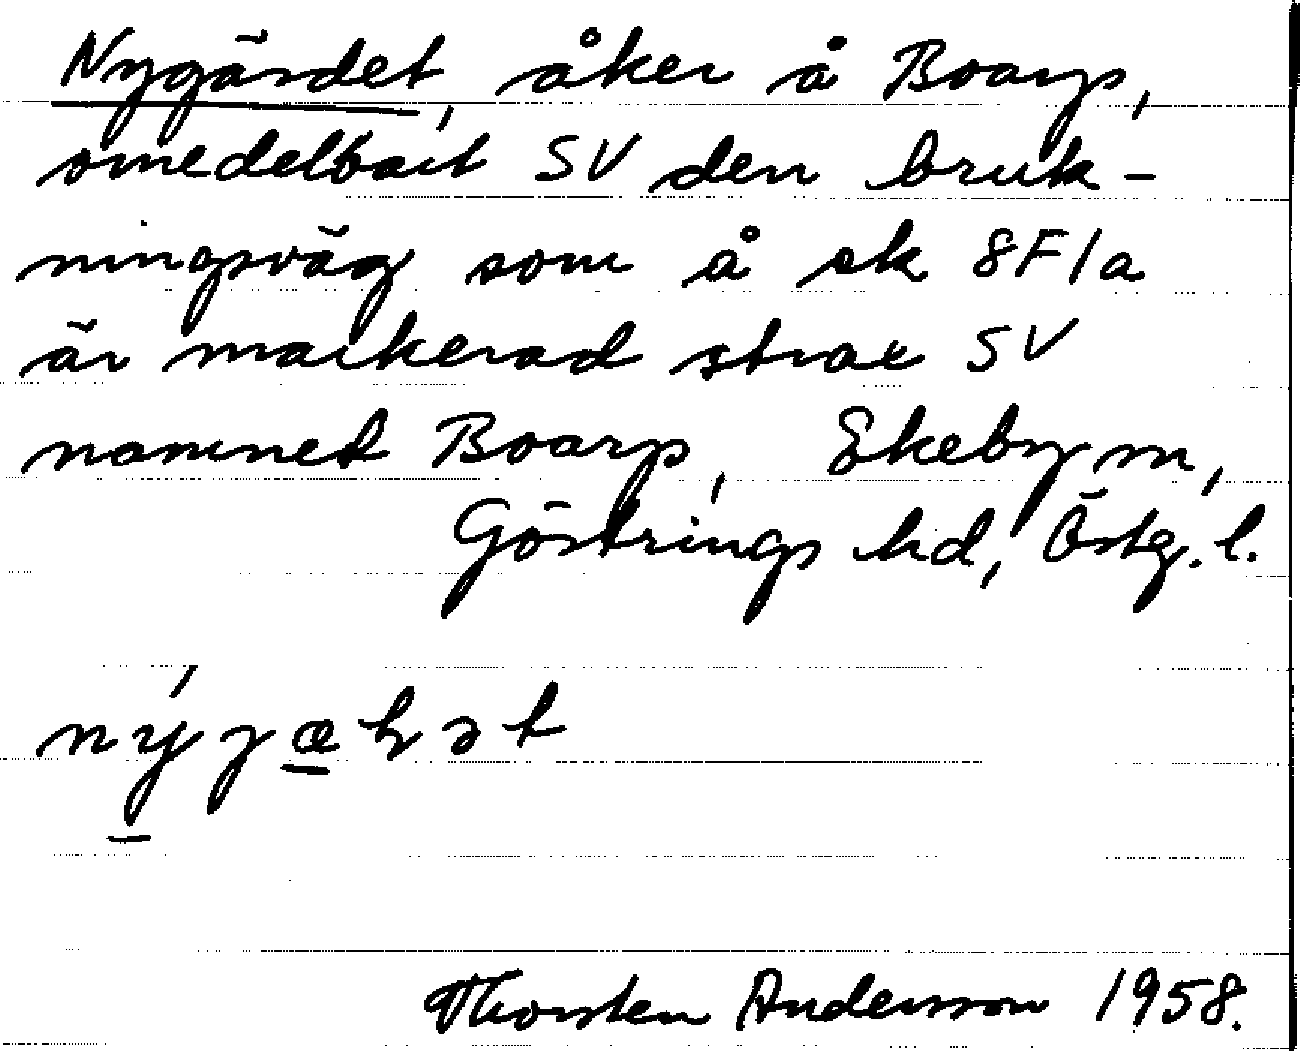 Nygärdet, åker å Boarp,
omedelbart SV den bruk-
ningsväg som å ek 8F1a
är markerad strax SV
namnet Boarp, Ekeby sn,
Göstrings hd, Östg. l.
Thorsten Andersson 1958.